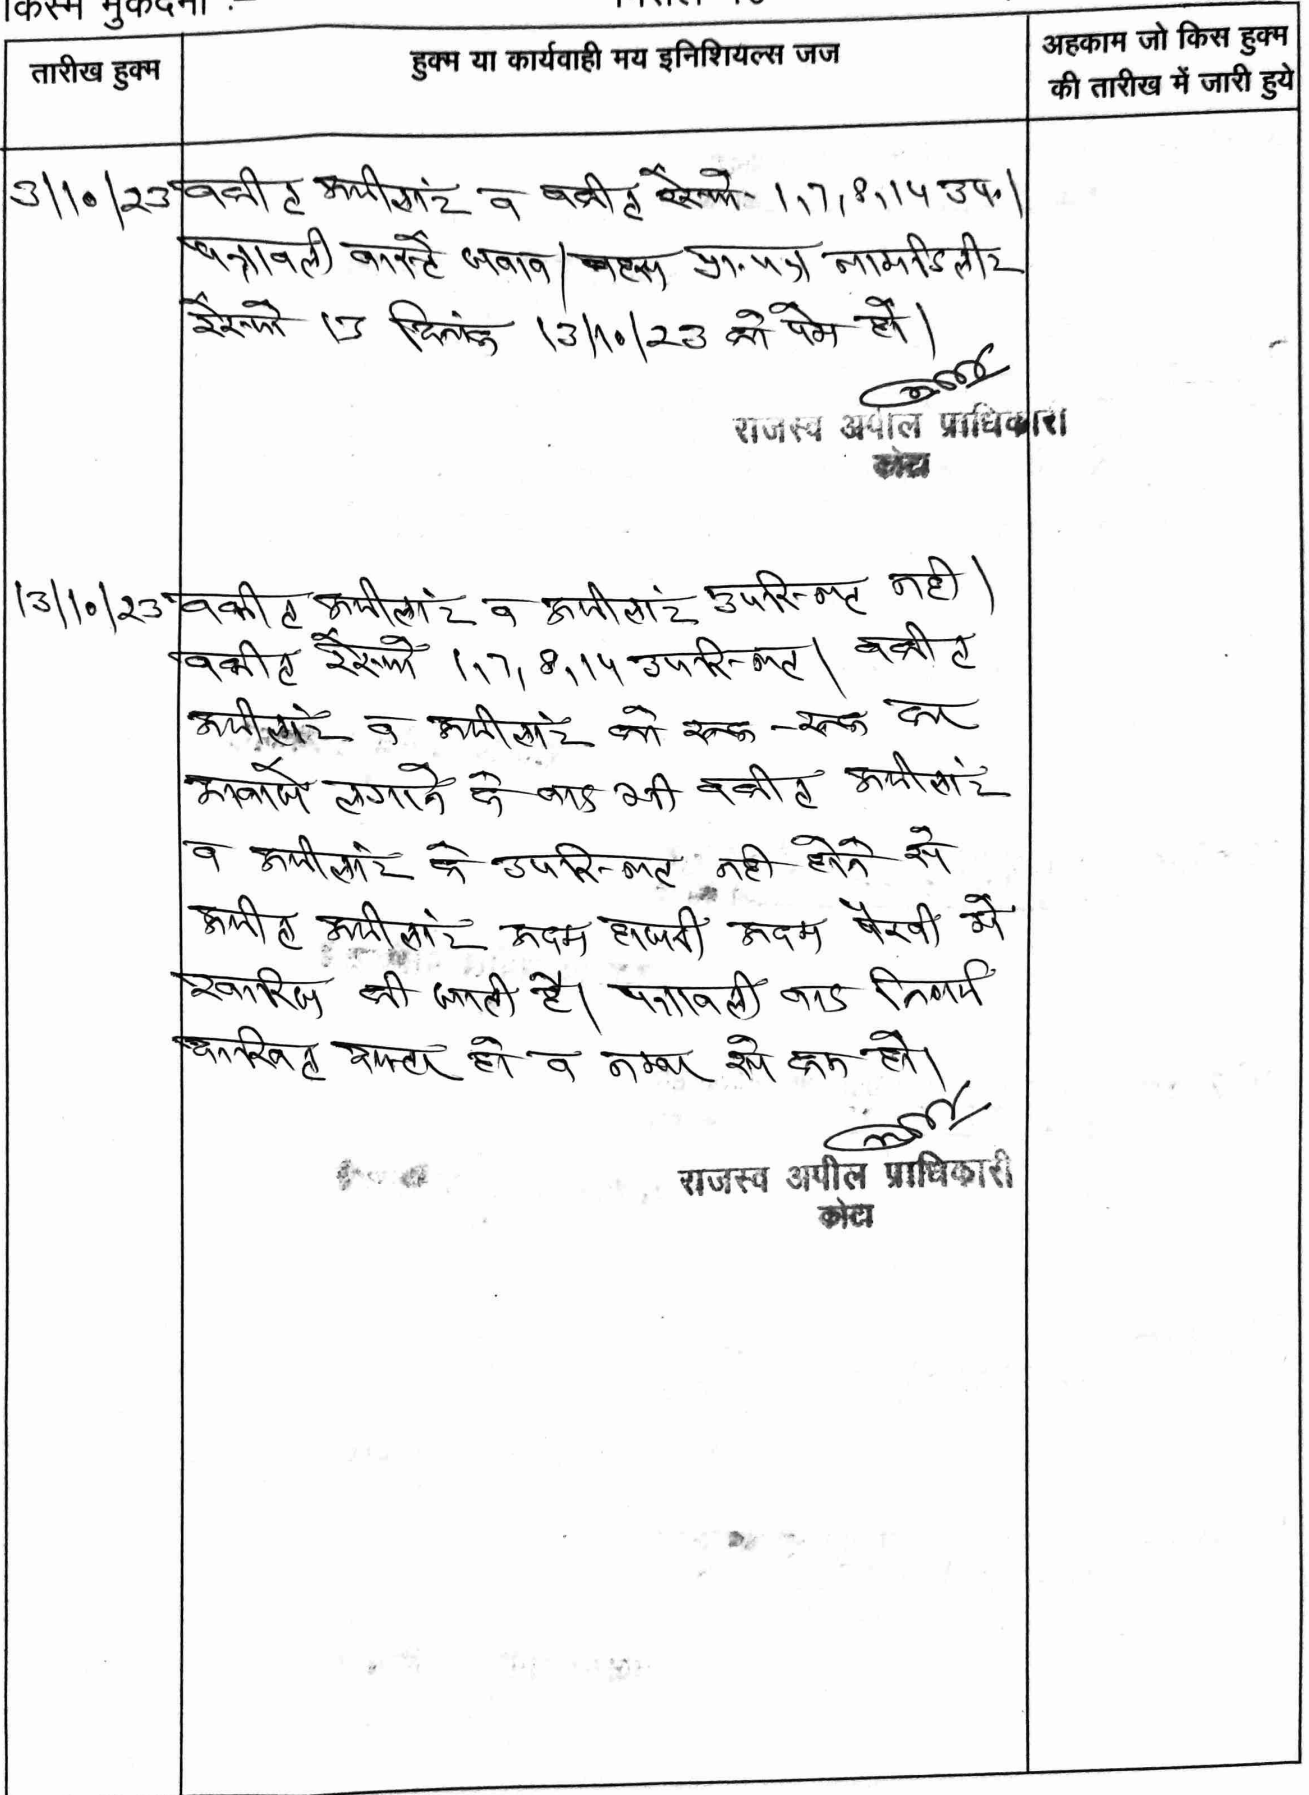 किस्म मुकदमा :-
तारीख हुक्म
हुक्म या कार्यवाही मय इनिशियल्स जज
अहकाम जो किस हुक्म
की तारीख में जारी हुये
3/10/23 वकील अपीलांट व वकील रेस्पो 1,7,8,14 उप।
पत्रावली वास्ते जवाब/बहस प्रा.पत्र नामडिलीट
रेस्पो 13 दिनांक 13/10/23 को पेश हो।
राजस्व अपील प्राधिकारी
कोटा
13/10/23 वकील अपीलांट व अपीलांट उपस्थित नही।
वकील रेस्पो 1,7,8,14 उपस्थित। वकील
अपीलांट व अपीलांट को रूक-रूक कर
आवाजे लगाने के बाद भी वकील अपीलांट
व अपीलांट के उपस्थित नही होने से
अपील अपीलांट अदम हाजरी अदम पैरवी में
खारिज की जाती है। पत्रावली बाद निर्णय
दाखिल दफ्तर हो व नम्बर से कम हो।
राजस्व अपील प्राधिकारी
कोटा